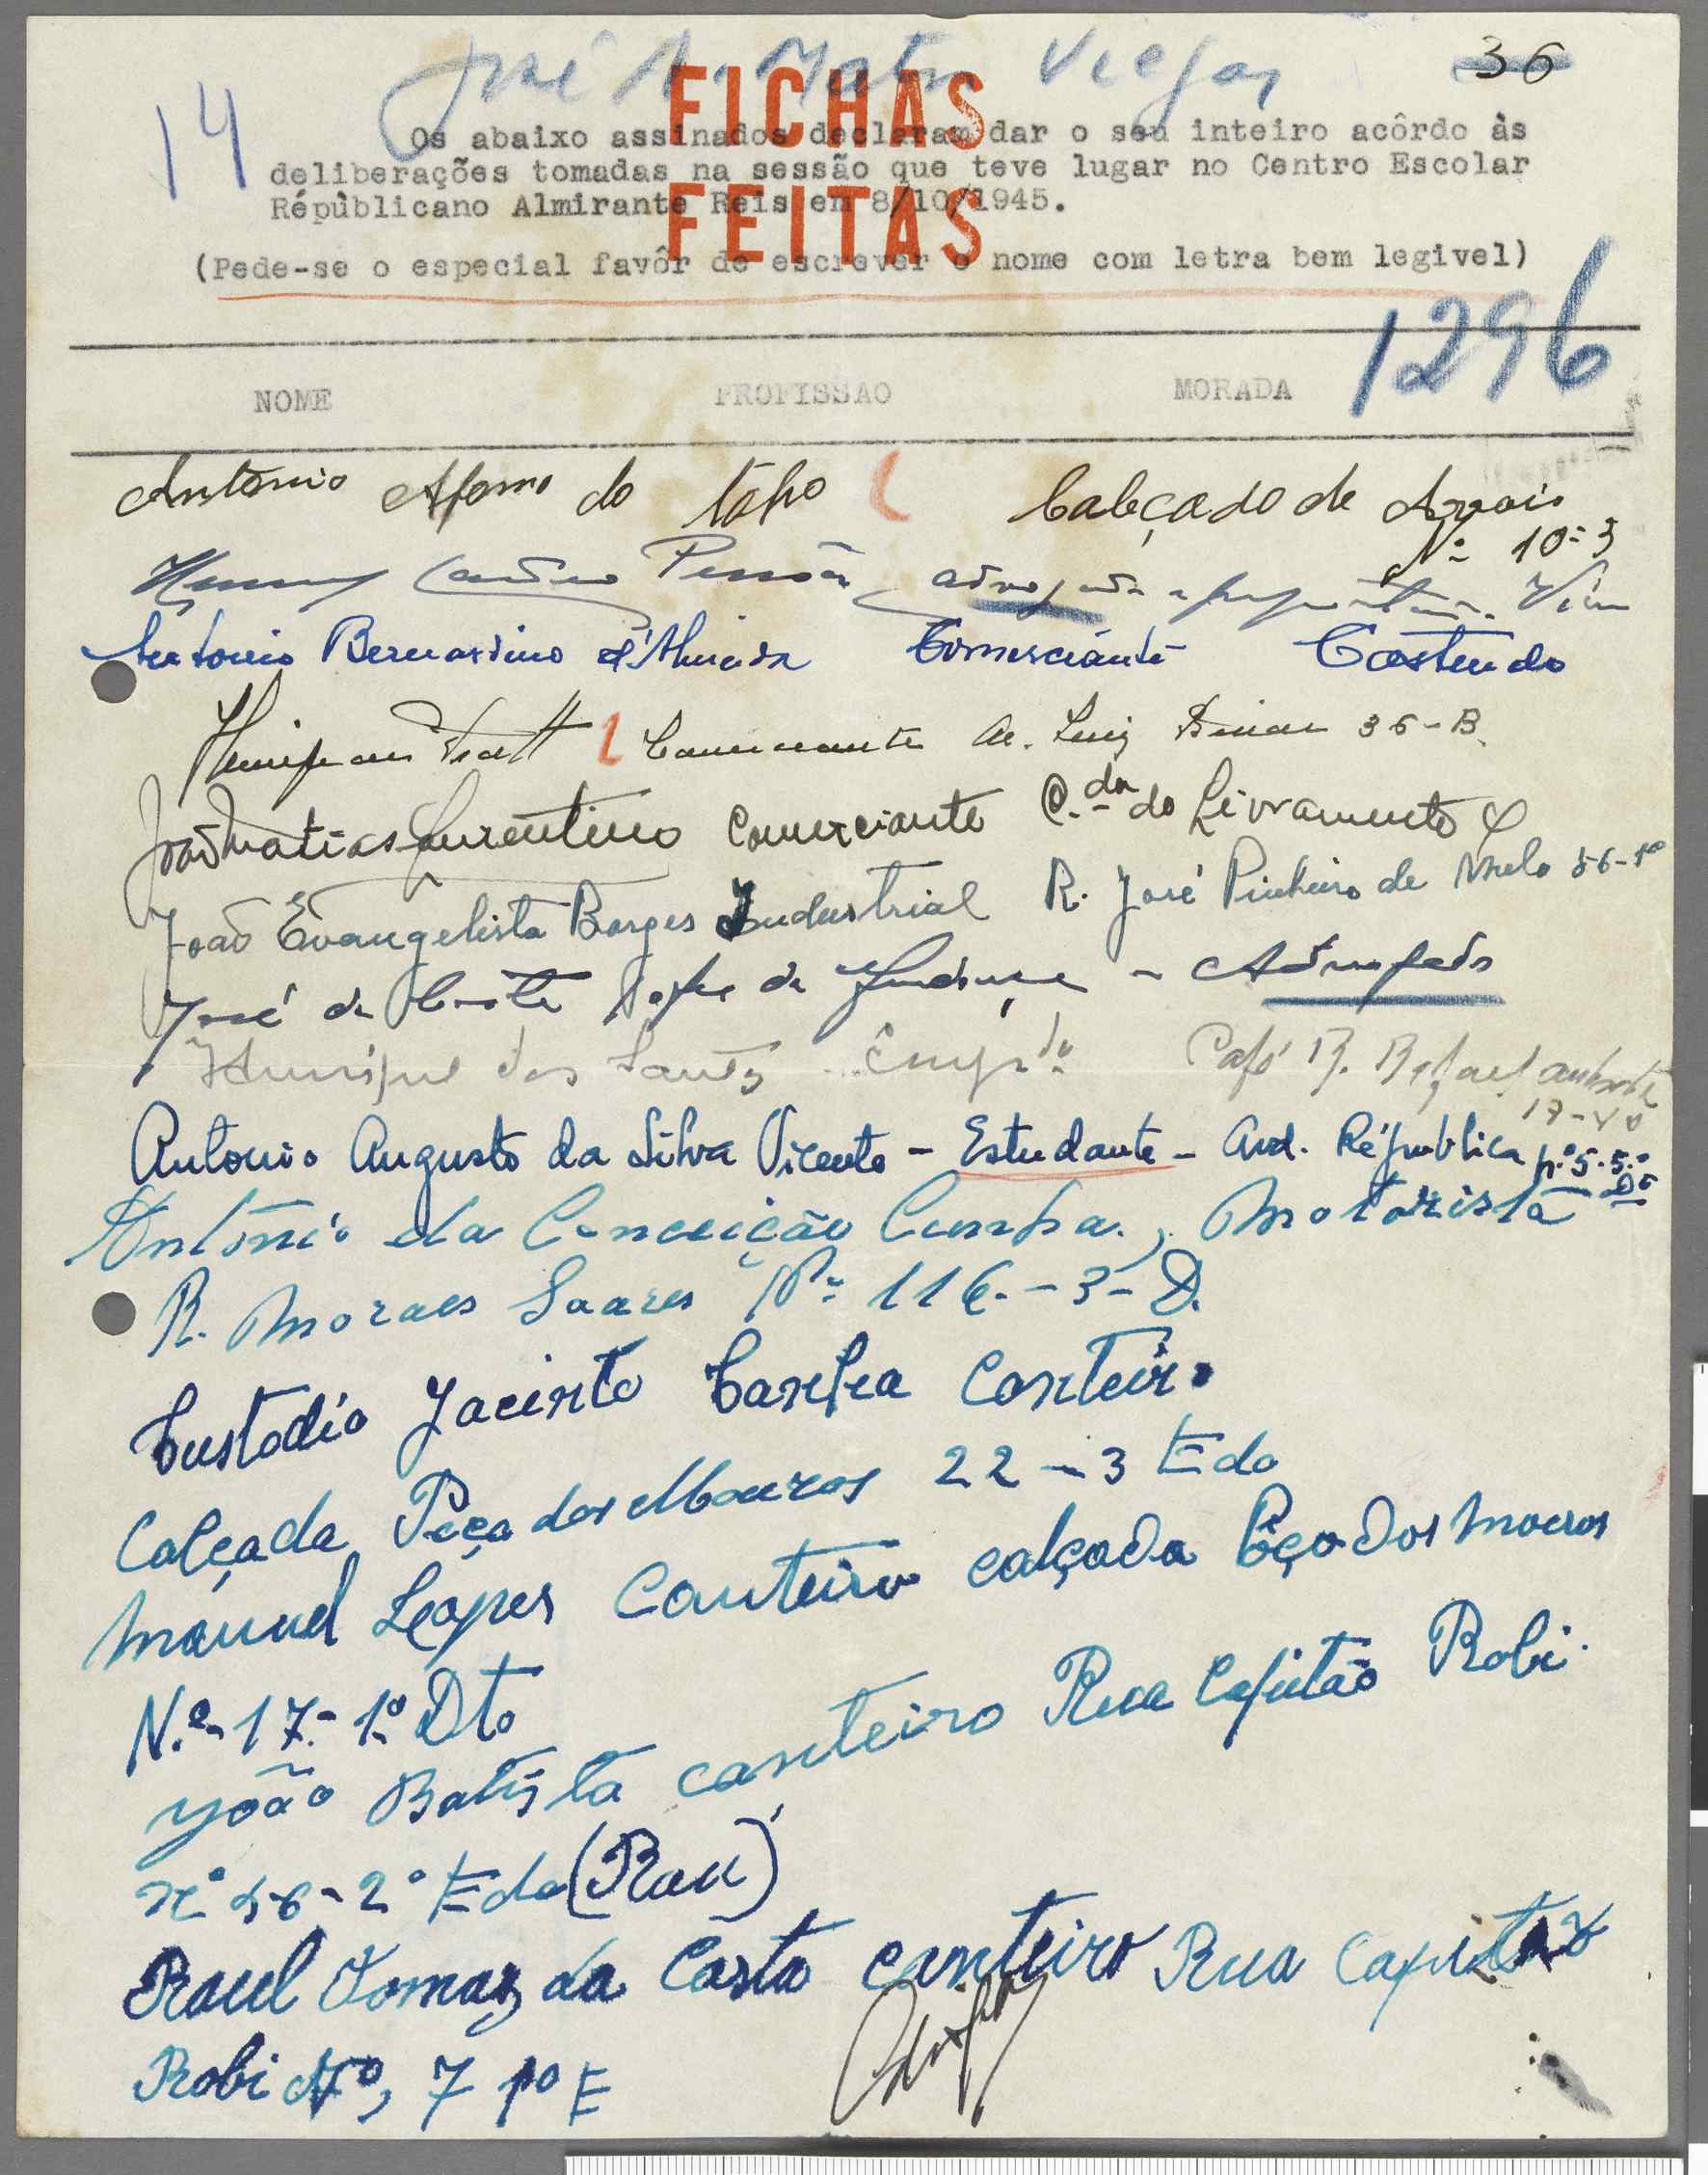 José A. Matos Viegas
36
14
FICHAS
FEITAS
Os abaixo assinados declaram dar o seu inteiro acôrdo às
deliberações tomadas na sessão que teve lugar no Centro Escolar
Répùblicano Almirante Reis em 8/10/1945.
(Pede-se o especial favôr de escrever o nome com letra bem legivel)
1296
NOME PROFISSAO MORADA
António Afonso do Calçado de
Nº 10-3
Pessôa, advogado e
Antonio Bernardino d'Almeida Comerciante Castendo
Comerciante Av. Luiz Bivar 36-B.
João Matias Lurentino Comerciante C.da do Livramento
João Evangelista Borges Industrial R. José Pinheiro de Melo 56-1º
José da Costa de - Advogado
Henrique dos Santos Emp.do Café R. Rafael Andrade
Antonio Augusto da Silva Vicente - Estudante - Avd. Républica nº 5. 5.º
Dº
António da Conceição Cunha., Motorista
R. Moraes Soares Nº 116.-3-D.
Custodio Jacinto Canteiro
Calçada Poço dos Mouros 22-3 Edo
Manuel Lopes Canteiro calçada Poço dos Mouros
N.º 17.- 1º Dto
João Batista canteiro Rua Capitão Robi
nº 56-2º Edo (Raul)
Raul Tomaz da Costa canteiro Rua Capitão
Robi Nº, 7 1º E